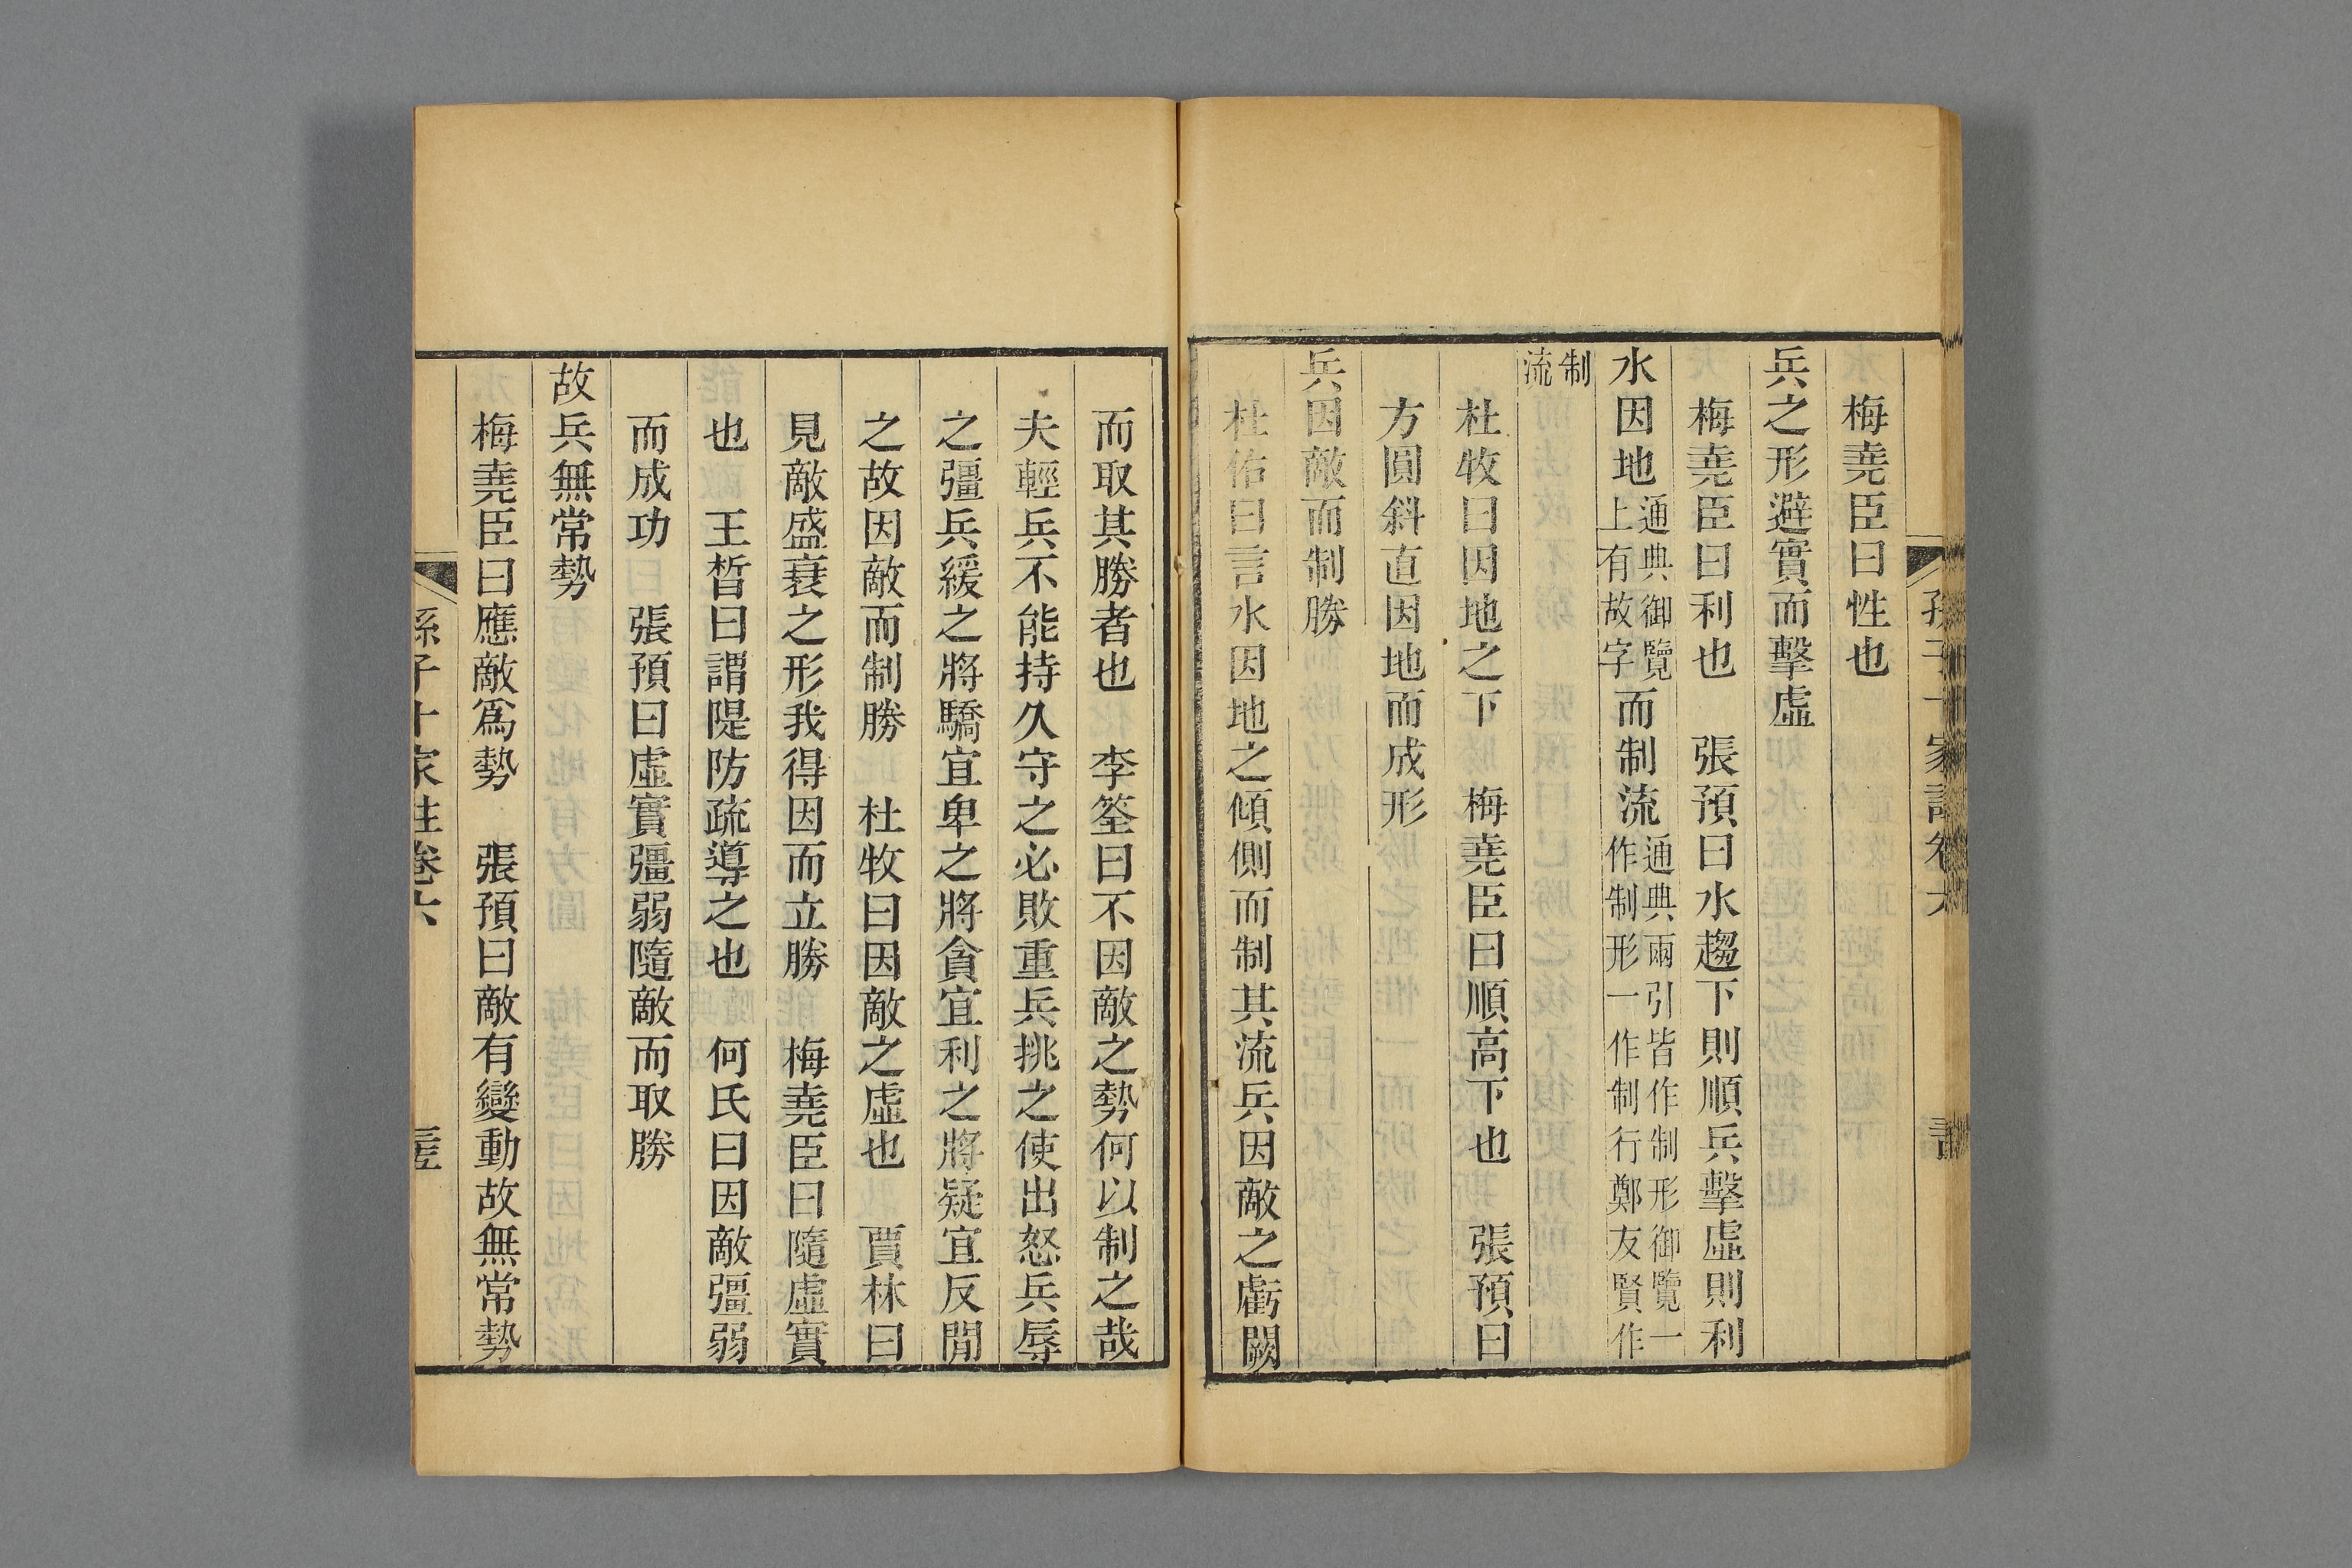 梅堯臣曰性也
兵之形避實而擊虛
梅堯臣曰利也　張預曰水趨下則順兵擊虛則利
水因地通典御覽上有故字而制流通典兩引皆作制形御覽一作制形一作制行鄭友賢作
制流
杜牧曰因地之下　梅堯臣曰順高下也　張預曰
方圓斜直因地而成形
兵因敵而制勝
杜佑曰言水因地之傾側而制其流兵因敵之虧闕
而取其勝者也　李筌曰不因敵之勢何以制之哉
夫輕兵不能持久守之必敗重兵挑之使出怒兵辱
之彊兵緩之將驕宜卑之將貪宜利之將疑宜反閒
之故因敵而制勝　杜牧曰因敵之虛也　賈林曰
見敵盛衰之形我得因而立勝　梅堯臣曰隨虛實
也　王晳曰謂隄防疏導之也　何氏曰因敵彊弱
而成功　張預曰虛實彊弱隨敵而取勝
故兵無常勢
梅堯臣曰應敵爲勢　張預曰敵有變動故無常勢
孫子十家註卷六